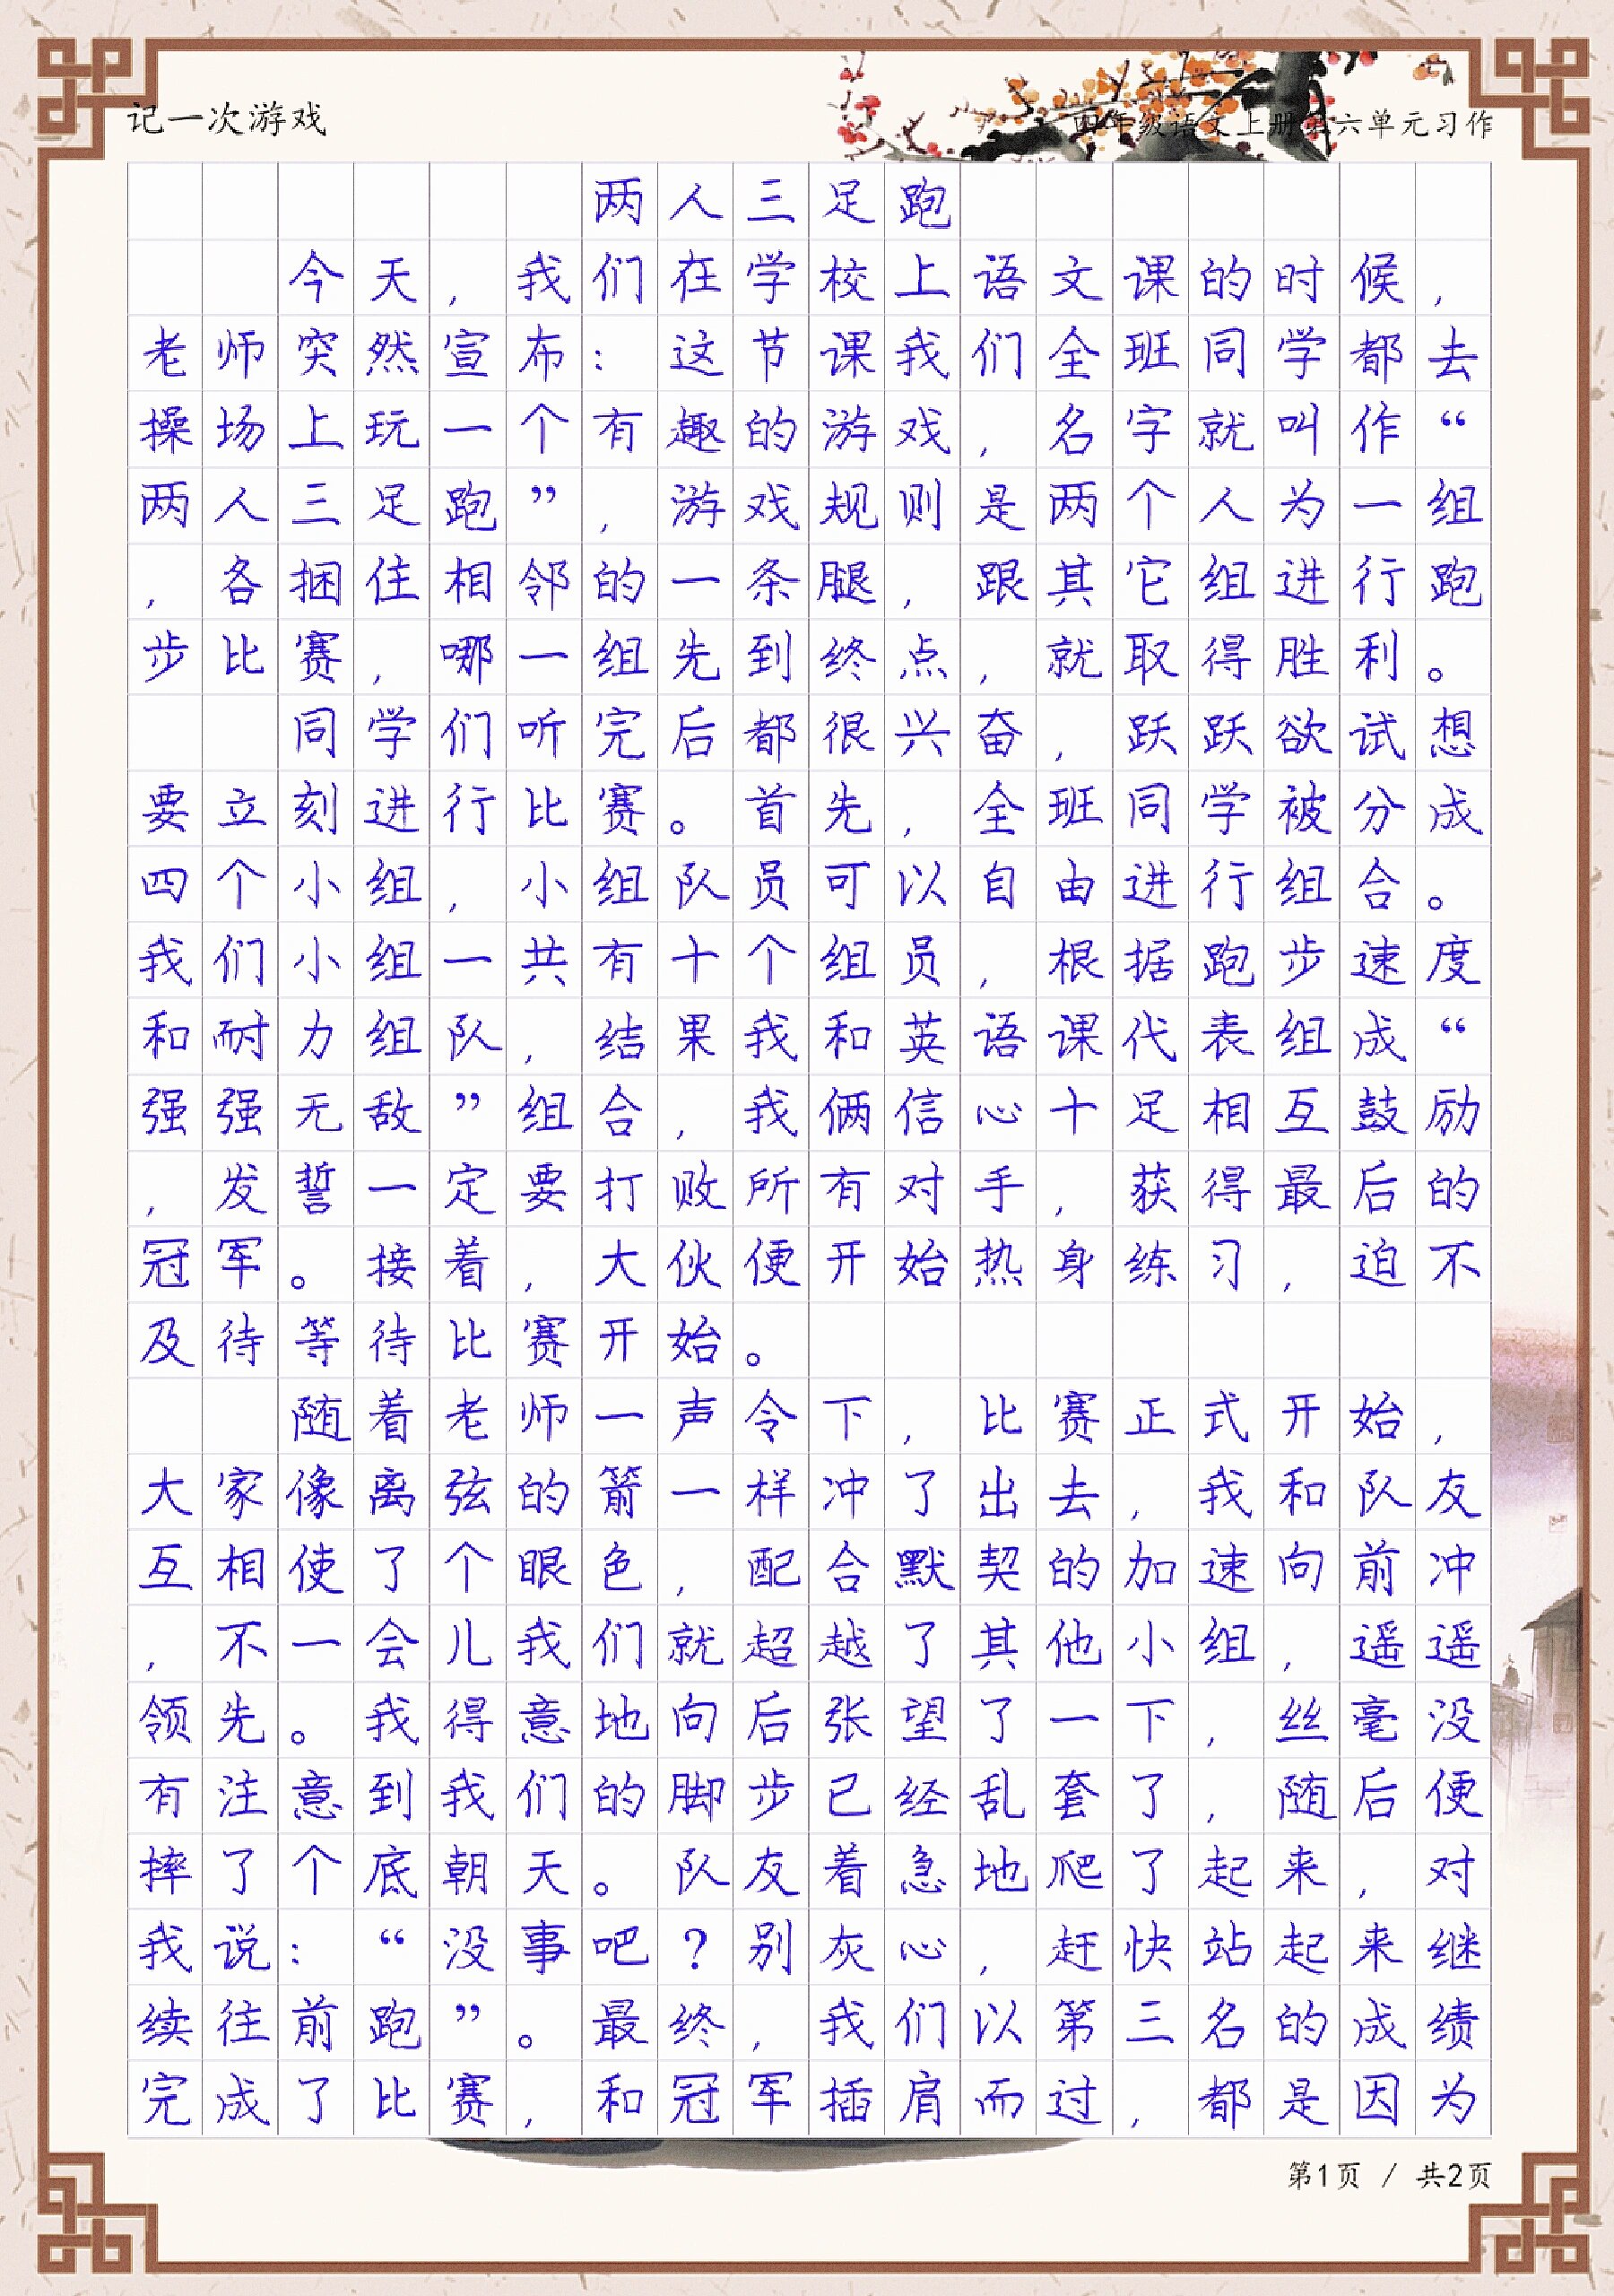 记一次游戏
四年级语文上册第六单元习作
两人三足跑
今天，我们在学校上语文课的时候，
老师突然宣布：这节课我们全班同学都去
操场上玩一个有趣的游戏，名字就叫作“
两人三足跑”，游戏规则是两个人为一组
，各捆住相邻的一条腿，跟其它组进行跑
步比赛，哪一组先到终点，就取得胜利。
同学们听完后都很兴奋，跃跃欲试想
要立刻进行比赛。首先，全班同学被分成
四个小组，小组队员可以自由进行组合。
我们小组一共有十个组员，根据跑步速度
和耐力组队，结果我和英语课代表组成“
强强无敌”组合，我俩信心十足相互鼓励
，发誓一定要打败所有对手，获得最后的
冠军。接着，大伙便开始热身练习，迫不
及待等待比赛开始。
随着老师一声令下，比赛正式开始，
大家像离弦的箭一样冲了出去，我和队友
互相使了个眼色，配合默契的加速向前冲
，不一会儿我们就超越了其他小组，遥遥
领先。我得意地向后张望了一下，丝毫没
有注意到我们的脚步已经乱套了，随后便
摔了个底朝天。队友着急地爬了起来，对
我说：“没事吧？别灰心，赶快站起来继
续往前跑”。最终，我们以第三名的成绩
完成了比赛，和冠军插肩而过，都是因为
第1页 / 共2页